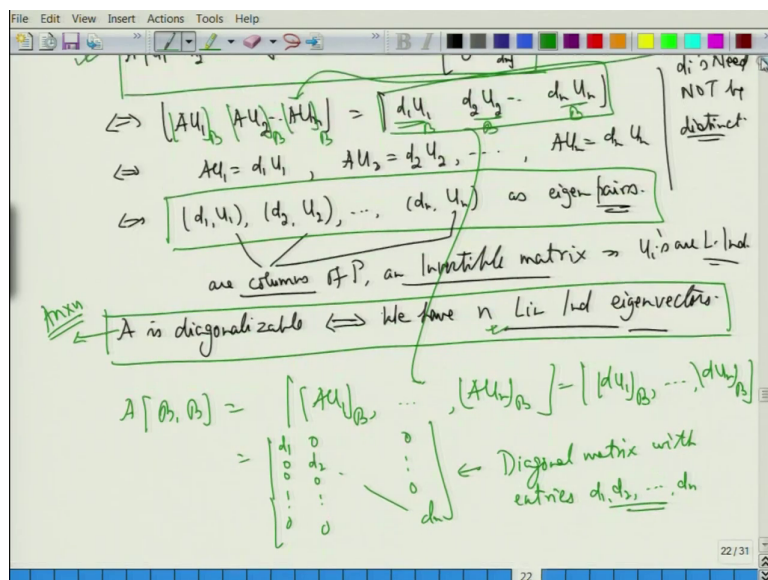 File Edit View Insert Actions Tools Help
di's Need
NOT be
distinct.
⇔ [[AU₁]_B [AU₂]_B ... [AUₙ]_B] = [d₁U₁_B d₂U₂_B ... dₙUₙ_B]
⇔ AU₁ = d₁U₁, AU₂ = d₂U₂, ..., AUₙ = dₙUₙ
⇔ (d₁,U₁), (d₂,U₂), ..., (dₙ,Uₙ) as eigen pairs.
are columns of P, an Invertible matrix ⇒ Uᵢ's are L. Ind.
A is diagonalizable ⇔ We have n Lin Ind eigenvectors.
A[B,B] = [[AU₁]_B, ..., [AUₙ]_B] = [[dU₁]_B, ..., [dUₙ]_B]
= [d₁ 0 0
0 d₂ . :
0 0 0
: :
0 0 dₙ] ← Diagonal matrix with
entries d₁, d₂, ..., dₙ
22/31
22